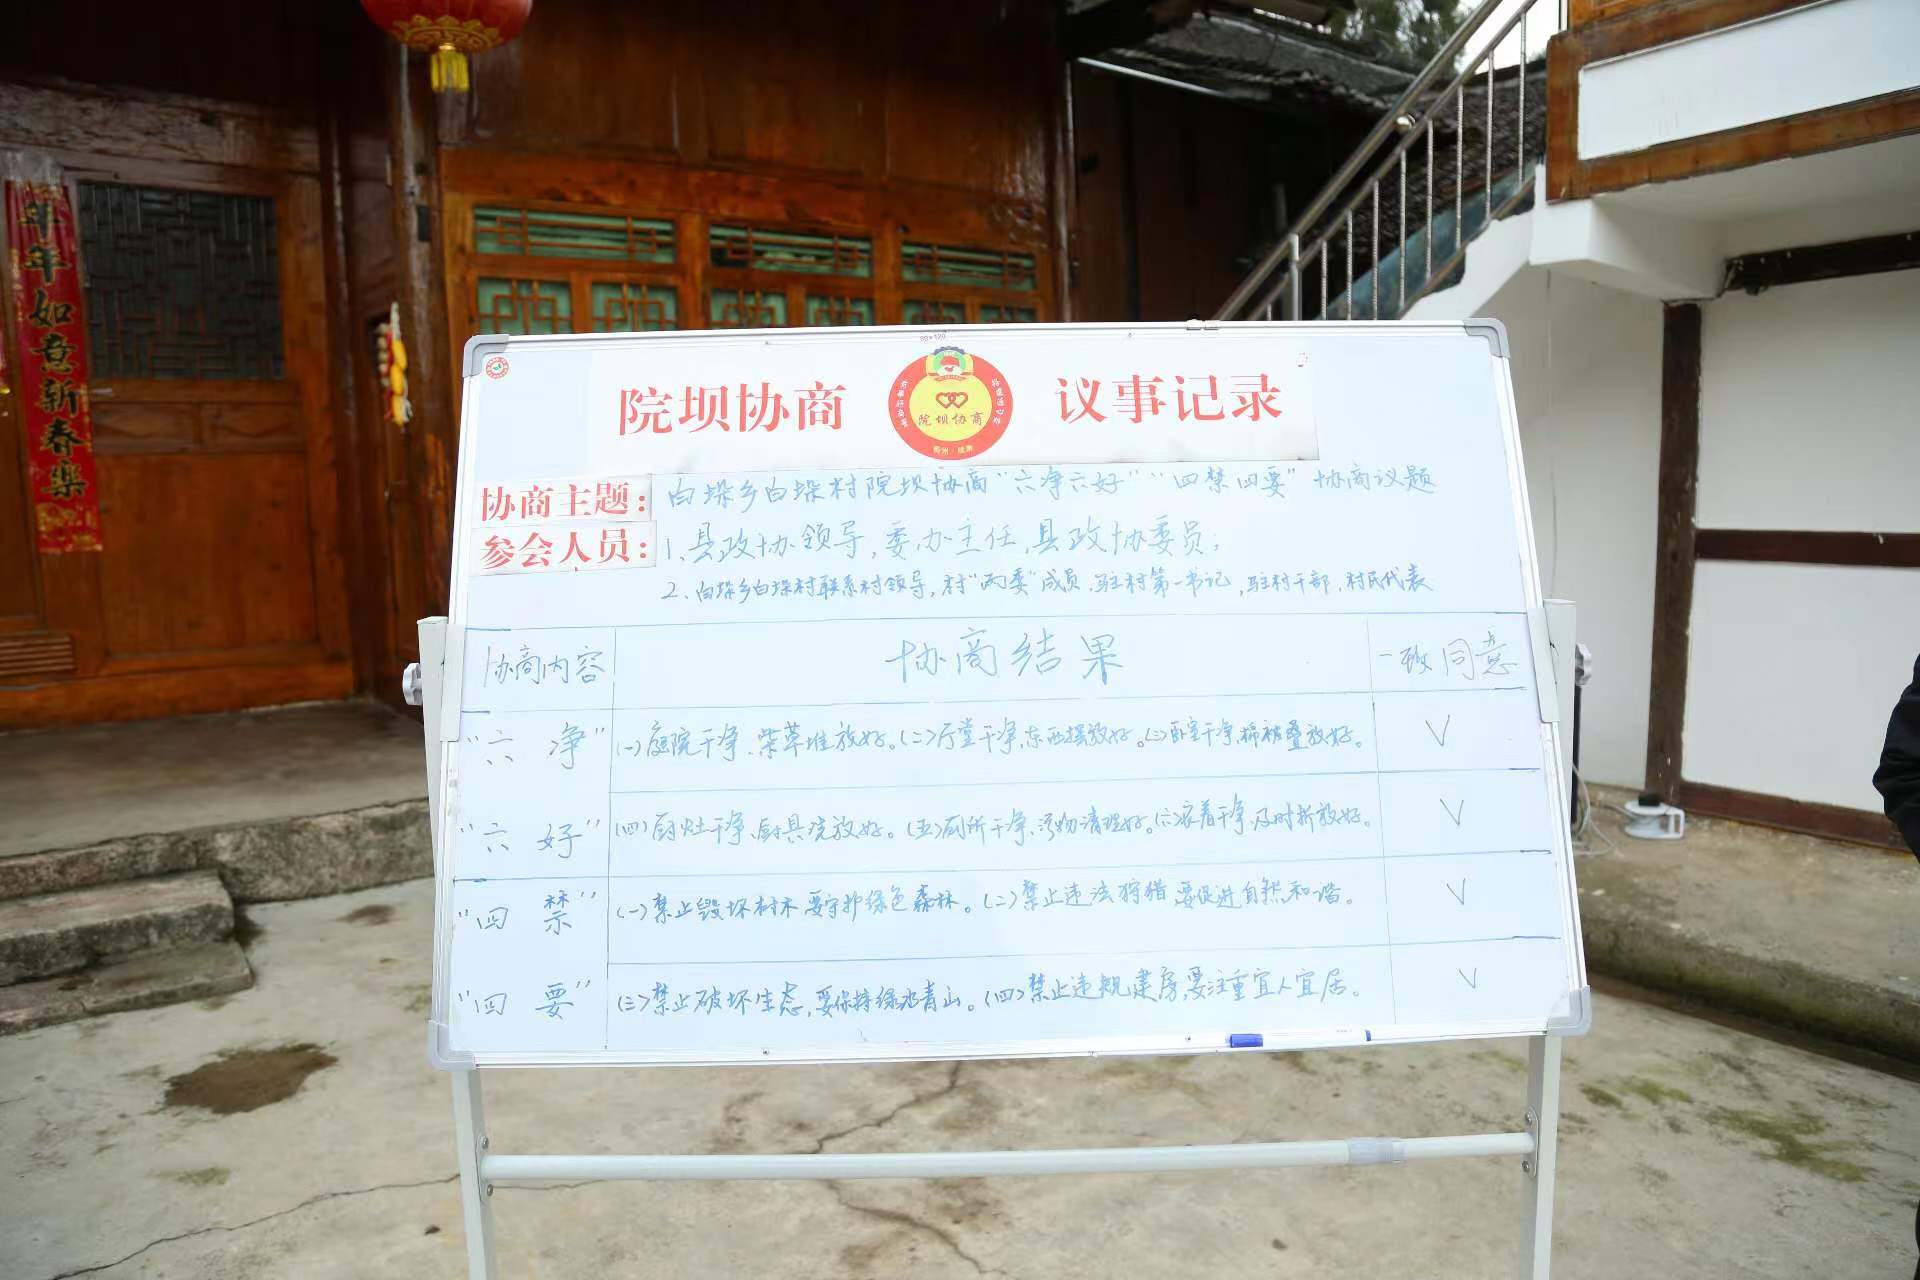 年年如意新春乐
90*120
院坝协商 议事记录
院坝协商
协商主题：白垛乡白垛村院坝协商“六净六好”“四禁四要”协商议题
参会人员：1、县政协领导，委办主任，县政协委员；
2、白垛乡白垛村联系村领导，村“两委”成员，驻村第一书记，驻村干部，村民代表
协商内容 协商结果 一致同意
“六净” (一)庭院干净、柴草堆放好。(二)厅堂干净，东西摆放好。(三)卧室干净，棉被叠放好。 √
“六好” (四)厨灶干净、厨具洗放好。(五)厕所干净、污物清理好。(六)衣着干净，及时折放好。 √
“四禁” (一)禁止毁坏树木，要守护绿色森林。(二)禁止违法狩猎，要促进自然和谐。 √
“四要” (三)禁止破坏生态，要保持绿水青山。(四)禁止违规建房，要注重宜人宜居。 √